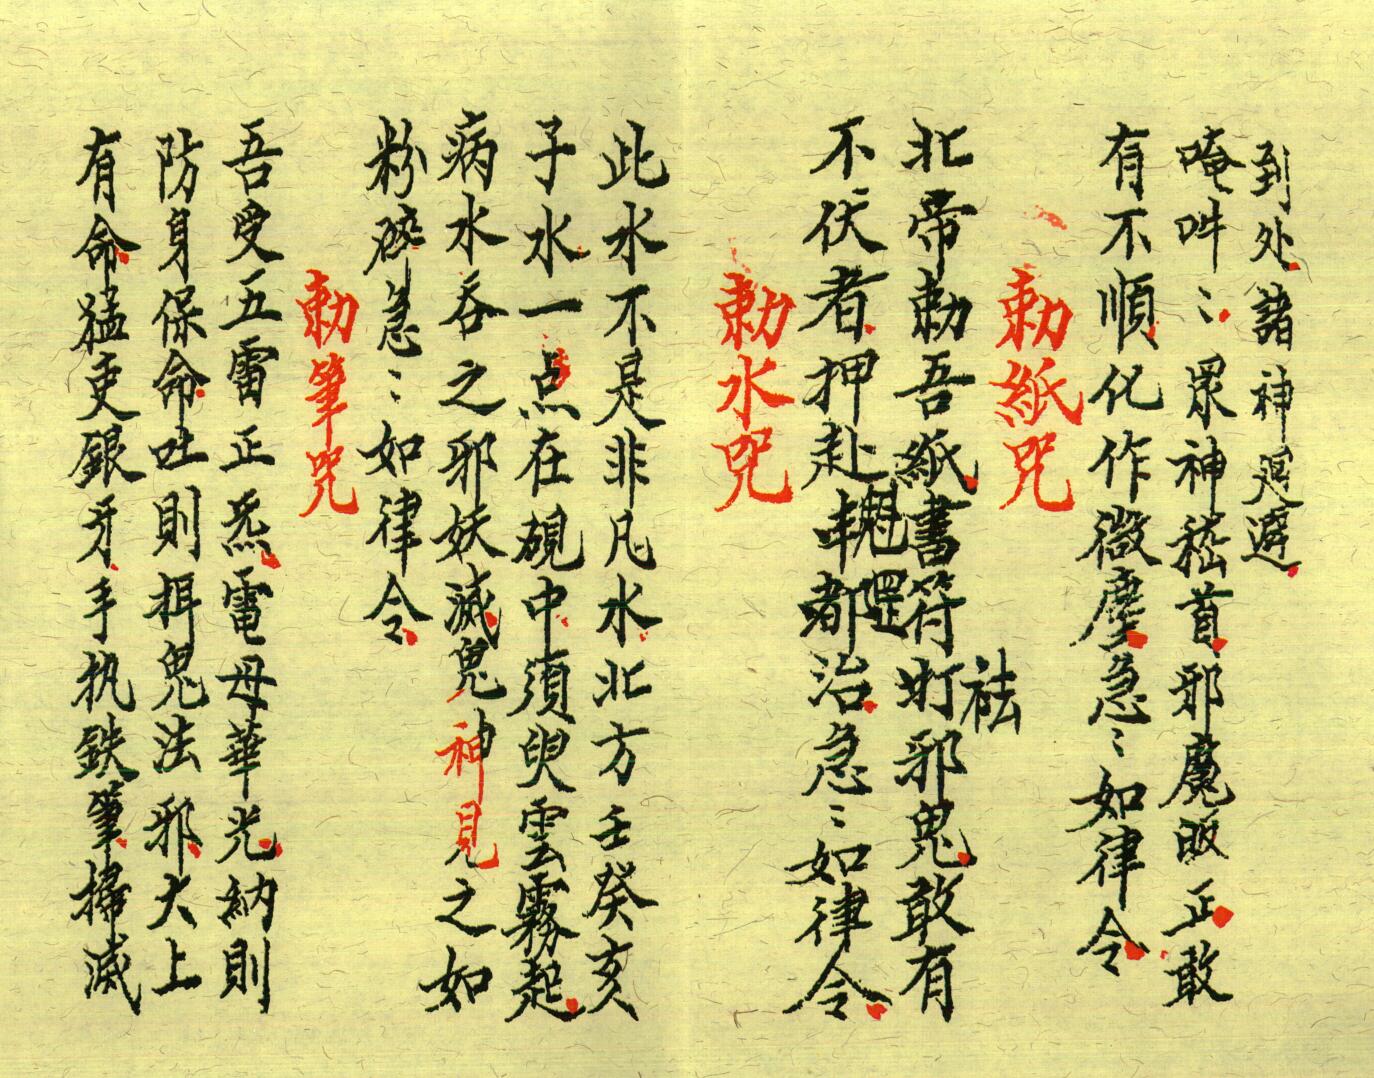 到处諸神迴避
唵吽〻眾神嵇首邪魔皈正敢
有不順化作微塵急〻如律令
敕紙咒
北帝敕吾紙書符打邪鬼敢有
祛
不伏者押赴都治急〻如律令
魁罡
敕水咒
此水不是非凡水北方壬癸亥
子水一点在硯中須臾雲霧起
病水吞之邪妖滅鬼神見之如
粉碎急〻如律令
敕筆咒
吾受五雷正炁電母華光納則
防身保命吐則捍鬼法邪大上
有命猛吏銀牙手执鉄筆掃滅